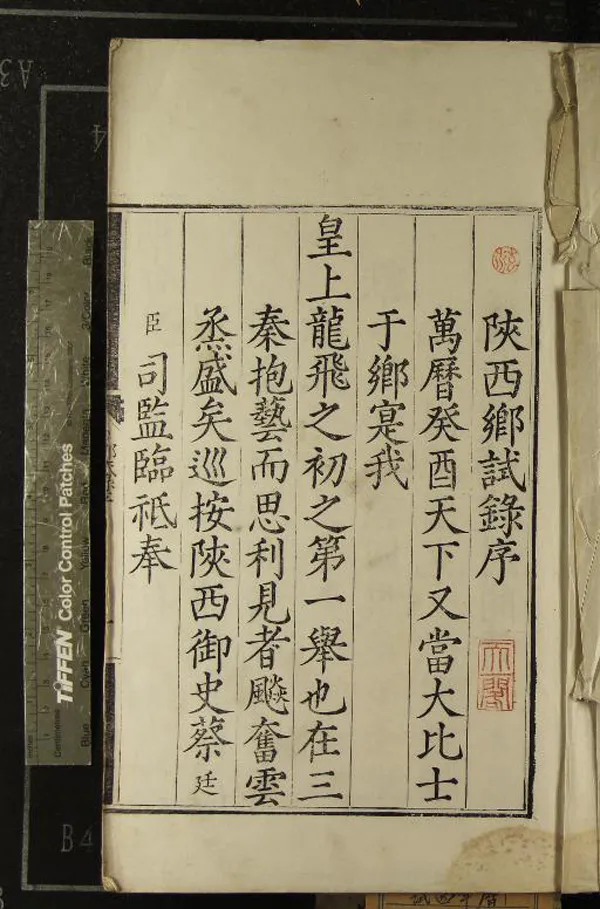 陝西鄉試錄序
萬曆癸酉天下又當大比士
于鄉寔我
皇上龍飛之初之第一舉也在三
秦抱藝而思利見者飈奮雲
烝盛矣巡按陝西御史蔡廷
臣司監臨祗奉
天閣
TIFFEN Color Control Patches
Blue
Cyan
Green
Yellow
Red
Magenta
White
3/Color
Black
Inches
Centimetres
A3
4
B4